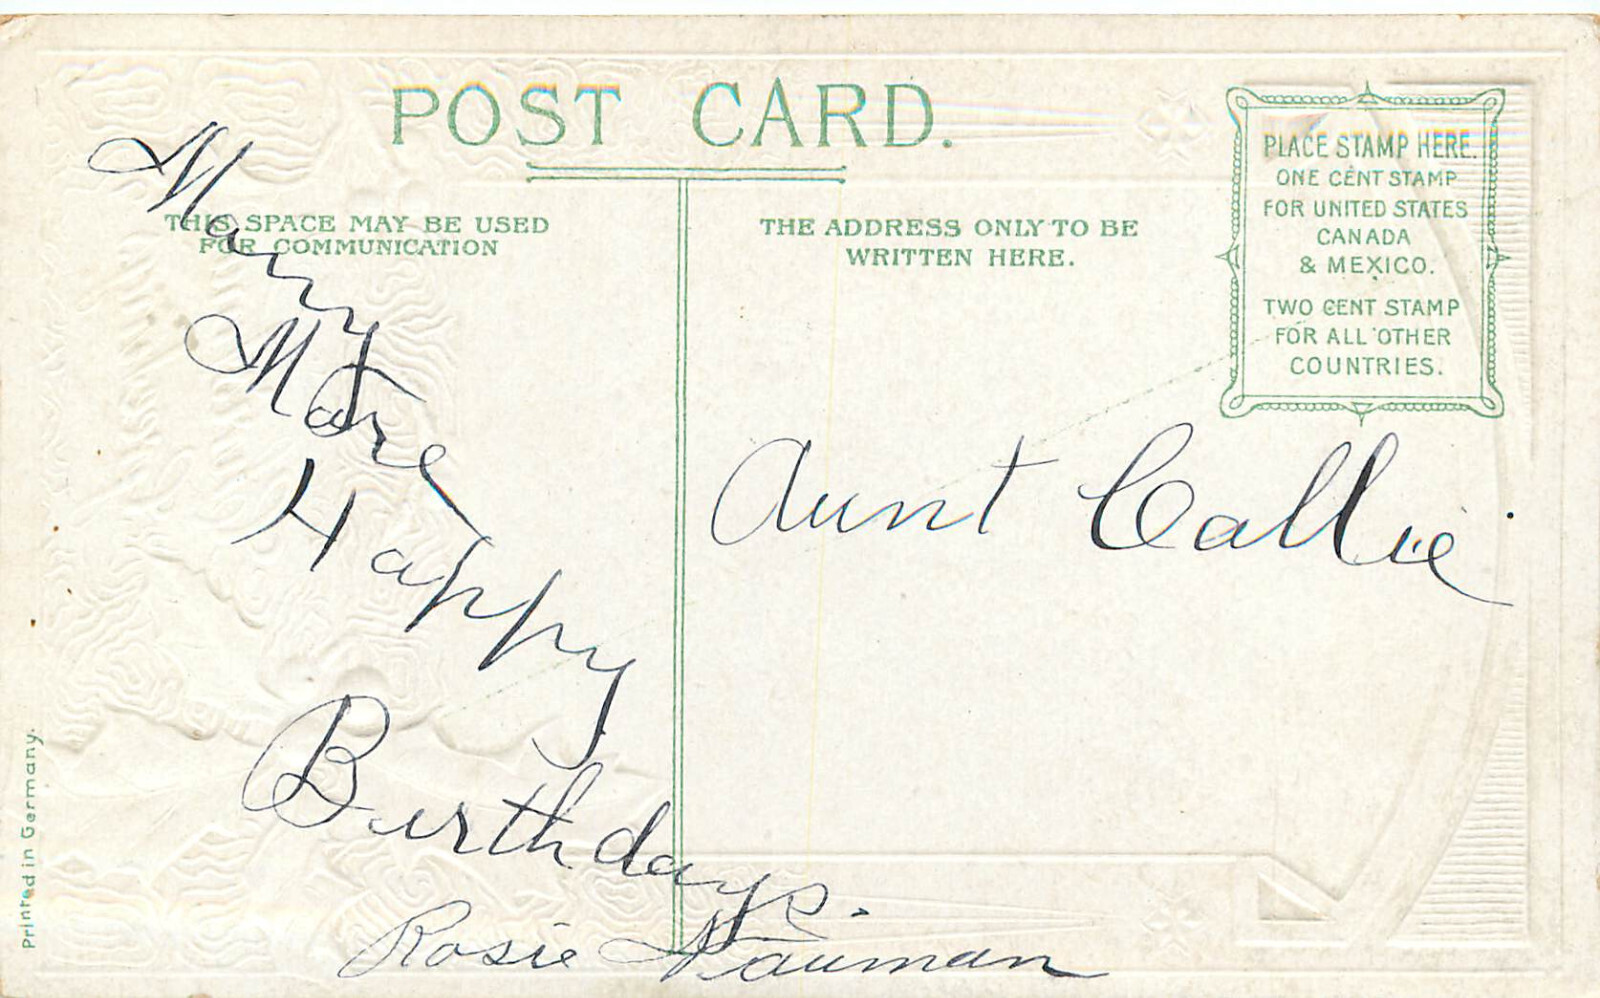 POST CARD.
THIS SPACE MAY BE USED
FOR COMMUNICATION
THE ADDRESS ONLY TO BE
WRITTEN HERE.
PLACE STAMP HERE.
ONE CENT STAMP
FOR UNITED STATES
CANADA
& MEXICO.
TWO CENT STAMP
FOR ALL OTHER
COUNTRIES.
Many
More
Happy
Birthdays.
Rosie Nauman
Aunt Callie
Printed in Germany.